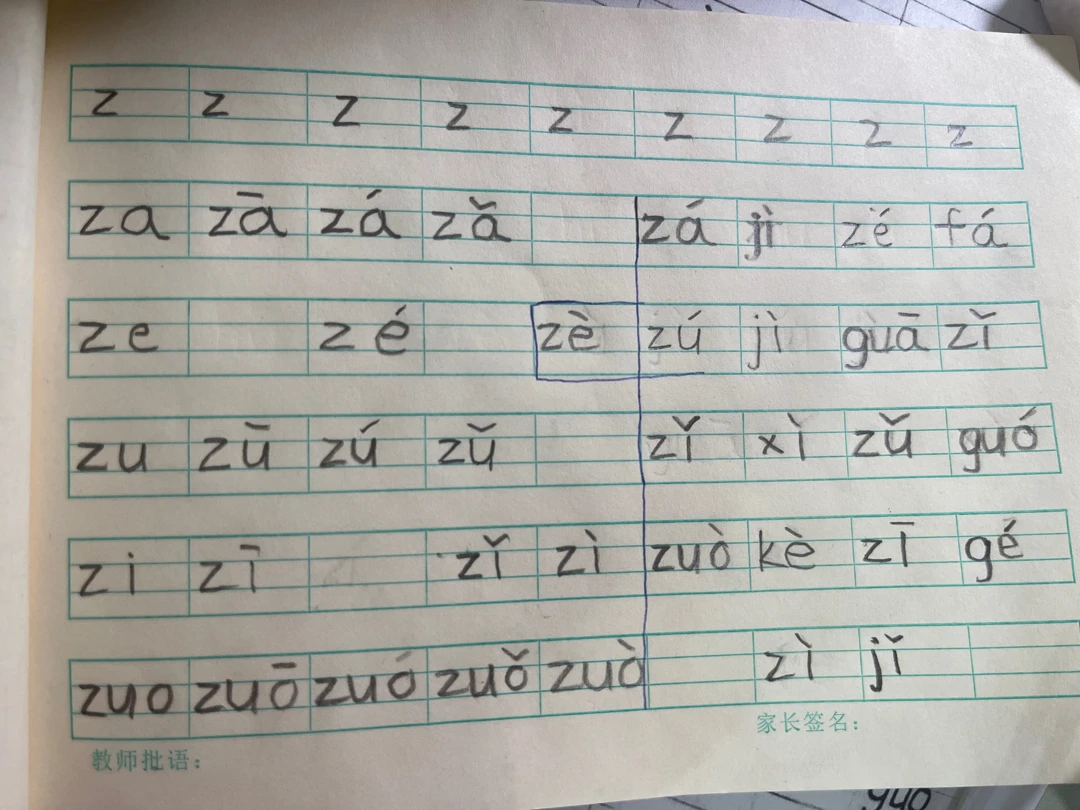 z z z z z z z z z
za zā zá zǎ zá jì zé fá
ze zé zè zú jì guā zǐ
zu zū zú zǔ zǐ xì zǔ guó
zi zī zǐ zì zuò kè zī gé
zuo zuō zuó zuǒ zuò zì jǐ
家长签名：
教师批语：